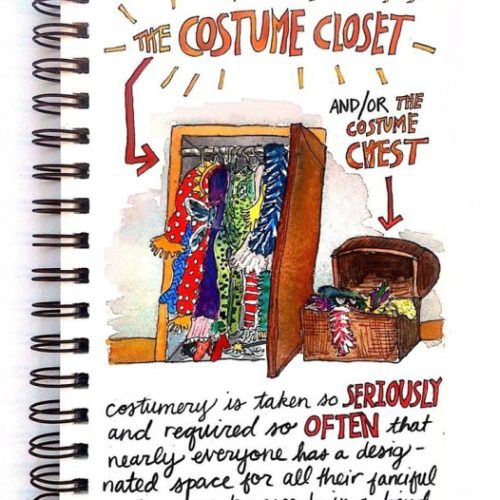 THE COSTUME CLOSET
AND/OR THE
COSTUME
CHEST
costumery is taken so SERIOUSLY
and required so OFTEN that
nearly everyone has a desig-
nated space for all their fanciful